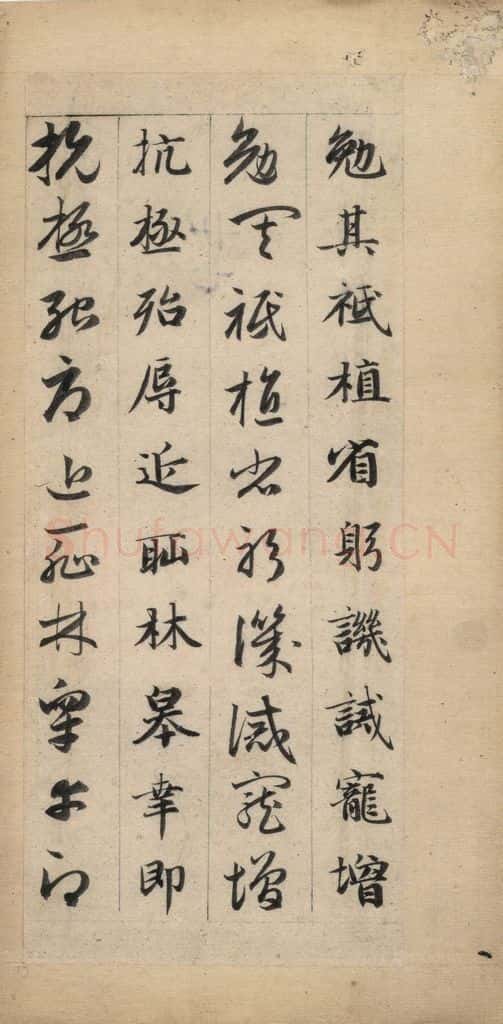 勉其祗植省躬譏誡寵增
勉其祗植省躬譏誡寵增
抗極殆辱近恥林皋幸即
抗極殆辱近恥林皋幸即
Shufawang.CN